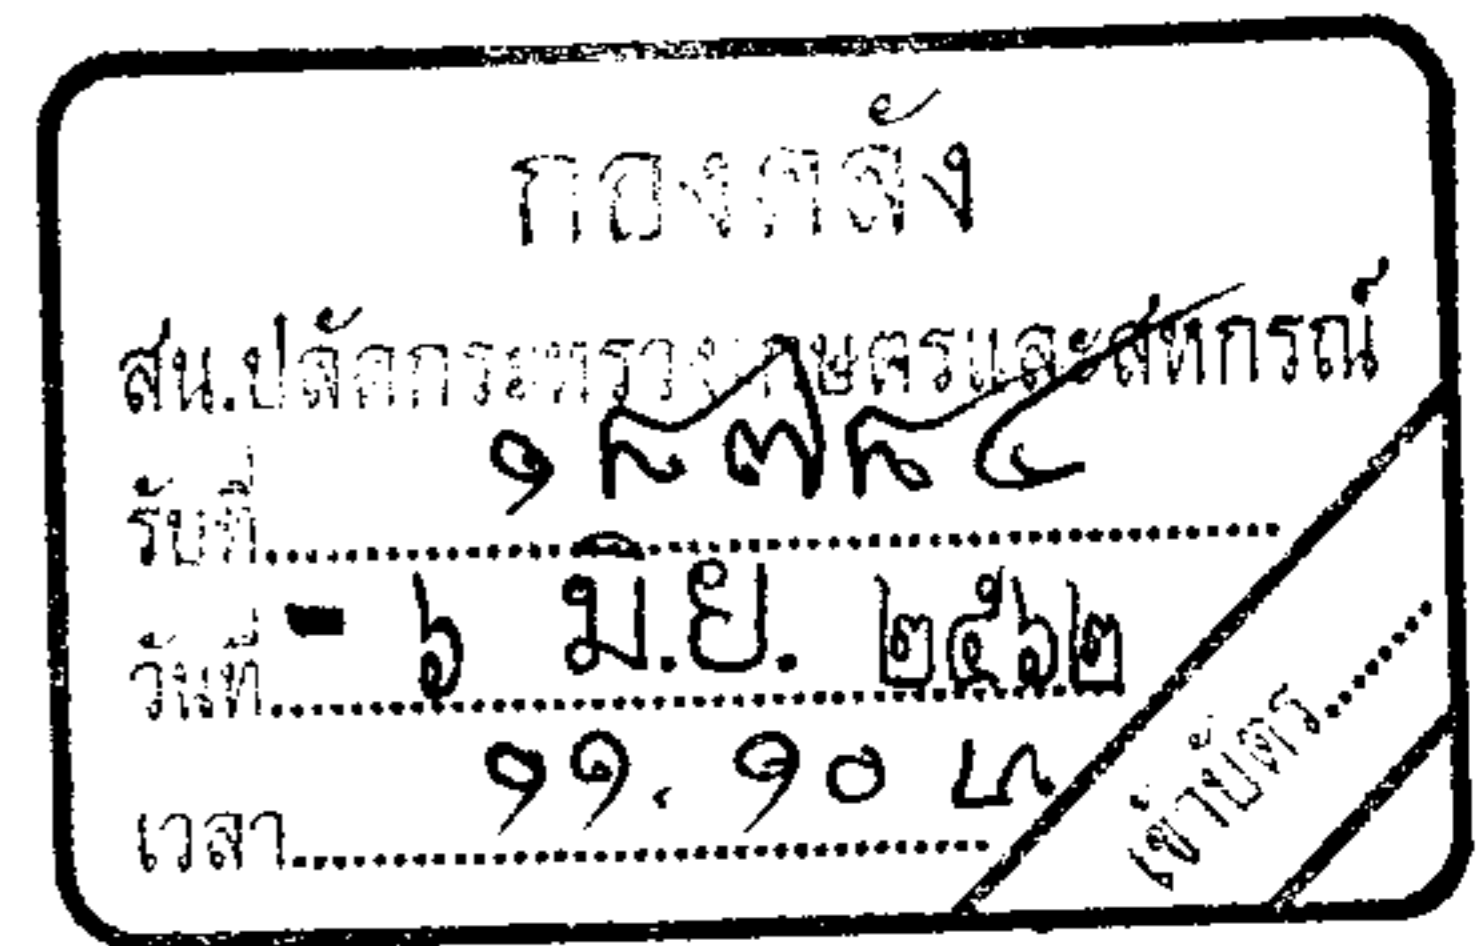 กองคลัง
สน.ปลัดกระทรวงเกษตรและสหกรณ์
รับที่ ๑๘๗๘๔
วันที่ - ๖ มิ.ย. ๒๕๖๒
เวลา ๑๑.๑๐ น
เข้าบัตร